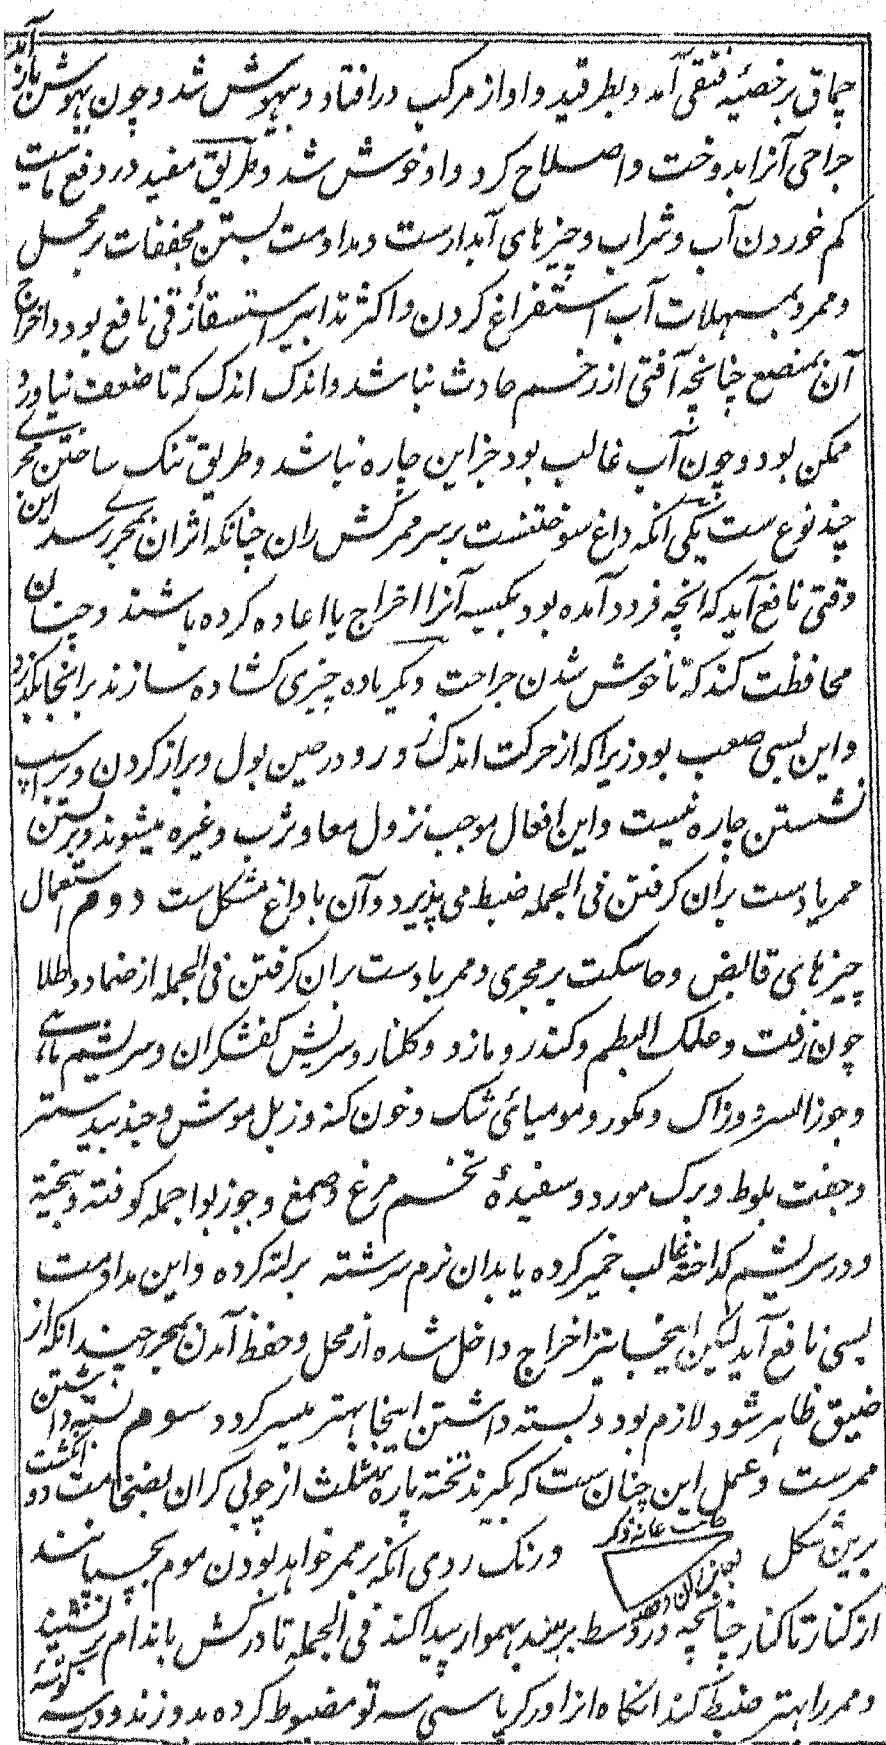 چماق برخصیه فتقی آمد و بطرقید و او از مرکب در افتاد و بیهوش شد و چون بهوش باز آمد
جراحی آنرا بدوخت و اصلاح کرد و او خوش شد و طریق مفید در دفع مائیت
کم خوردن آب و شراب و چیزهای آبدارست و مداومت بستن مجففات بر محل
و ممر و بمسهلات آب استفراغ کردن و اکثر تدابیر استسقاء زقی نافع بود و اخراج
آن بمبضع چنانچه آفتی از زخم حادث نباشد و اندک اندک که تا ضعف نیاورد
ممکن بود و چون آب غالب بود جز این چاره نباشد و طریق تنک ساختن مجرے
چند نوع ست یکی آنکه داغ سوختنست بر سر ممر کش ران چنانکه اثر آن بمجرے رسد این
وقتی نافع آید که آنچه فرود آمده بود بکیسه آنرا اخراج یا اعاده کرده باشند و چنان
محافظت کند که تا خوش شدن جراحت دیگر باده چیزی کشاده سازند بر انجا نگذرد
و این بسی صعب بود زیرا که از حرکت اندک زور و در حین بول و براز کردن و بر اسپ
نشستن چاره نیست و این افعال موجب نزول معا و ثرب و غیره میشوند و بر بستن
ممر یا دست بران گرفتن فی الجمله ضبط می پذیرد و آن با داغ مشکل ست دوم استعمال
چیزهای قابض و ماسکت بر مجری و ممر با دست بران گرفتن فی الجمله از ضماد و طلا
چون زفت و علک البطم و کندر و مازو و گلنار و سریش کفشگران و سریشم ماهی
و جوز السرو و زاک و مکور و مومیائی شک و خون کنه و زبل موش و جندبیدستر
و جفت بلوط و برک مورد و سفیدهٔ تخم مرغ و صمغ و جوز بوا جمله کوفته و بیخته
و در سریشم گداخته غالب خمیر کرده یا بدان نرم سرشته بر لته کرده و این مداومت
بسی نافع آید لیکن اینجا نیز اخراج داخل شده از محل و حفظ آمدن بمجر چندانکه از
ضیق ظاهر شود لازم بود و بسته داشتن اینجا بهتر میسر گردد سوم بسته داشتن
ممرست و عمل این چنان ست که بگیرند تخته پارهٔ مثلث از چوبی گران بضخامت دو انگشت
برین شکل جانب عانه و ذکر جانب ران و خصیه و رنک ردی آنکه بر ممر خواهد بودن موم بچسپانند
از کنار تا کنار چنانچه در وسط بر بلند بهموار پیدا کند فی الجمله تا در کش باندام بر نشیند
و ممر را بهتر ضبط کند آنگاه انرا در کرپاسی سه تو مضبوط کرده بدوزند و در سه گوشهٔ